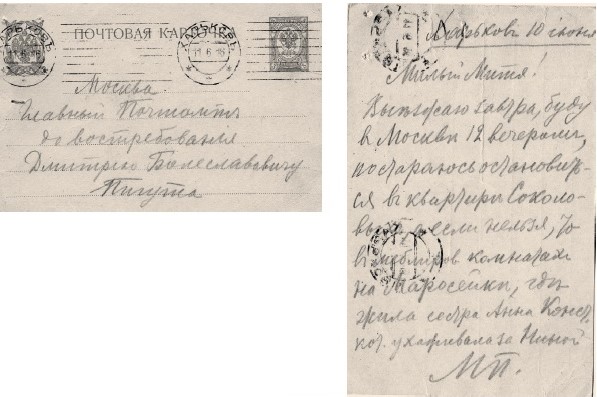 ХАРЬКОВЪ
ПОЧТОВАЯ КАРТОЧКА
ХАРЬКОВЪ
11 6 16
Москва.
Главный Почтамтъ
до востребованія
Дмитрію Болеславовичу
Пигута
Харьковъ 10 іюня
Милый Митя!
Выѣзжаю завтра, буду
в Москвѣ 12 вечеромъ,
постараюсь остановить-
ся въ квартирѣ Соколо-
выхъ а если нельзя, то
в комнатах
на Маросейкѣ, гдѣ
жила сестра Анна Конст.
кот. ухаживала за Ниной
МП.